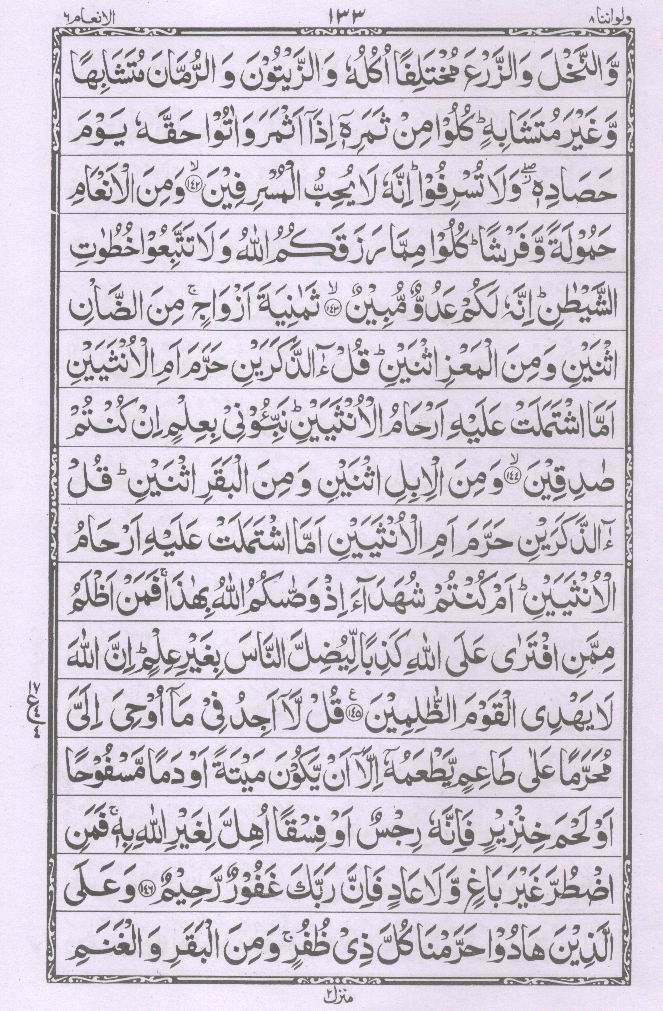 ولواننا ٨ ١٣٣ الانعام ٦
وَّالنَّخْلَ وَالزَّرْعَ مُخْتَلِفًا اُكُلُهٗ وَالزَّيْتُوْنَ وَ الرُّمَّانَ مُتَشَابِهًا
وَّغَيْرَ مُتَشَابِهٍ ؕ كُلُوْا مِنْ ثَمَرِهٖۤ اِذَاۤ اَثْمَرَ وَاٰتُوْا حَقَّهٗ يَوْمَ
حَصَادِهٖ ۖ وَلَا تُسْرِفُوْا ؕ اِنَّهٗ لَا يُحِبُّ الْمُسْرِفِيْنَ ۙ﴿۱۴۲﴾ وَمِنَ الْاَنْعَامِ
حَمُوْلَةً وَّفَرْشًا ؕ كُلُوْا مِمَّا رَزَقَكُمُ اللّٰهُ وَلَا تَتَّبِعُوْا خُطُوٰتِ
الشَّيْطٰنِ ؕ اِنَّهٗ لَكُمْ عَدُوٌّ مُّبِيْنٌ ۙ﴿۱۴۳﴾ ثَمٰنِيَةَ اَزْوَاجٍ ۚ مِنَ الضَّاْنِ
اثْنَيْنِ وَمِنَ الْمَعْزِ اثْنَيْنِ ؕ قُلْ ءٰٓالذَّكَرَيْنِ حَرَّمَ اَمِ الْاُنْثَيَيْنِ
اَمَّا اشْتَمَلَتْ عَلَيْهِ اَرْحَامُ الْاُنْثَيَيْنِ ؕ نَبِّـُٔوْنِيْ بِعِلْمٍ اِنْ كُنْتُمْ
صٰدِقِيْنَ ۙ﴿۱۴۴﴾ وَمِنَ الْاِبِلِ اثْنَيْنِ وَمِنَ الْبَقَرِ اثْنَيْنِ ؕ قُلْ
ءٰٓالذَّكَرَيْنِ حَرَّمَ اَمِ الْاُنْثَيَيْنِ اَمَّا اشْتَمَلَتْ عَلَيْهِ اَرْحَامُ
الْاُنْثَيَيْنِ ؕ اَمْ كُنْتُمْ شُهَدَآءَ اِذْ وَصّٰكُمُ اللّٰهُ بِهٰذَا ۚ فَمَنْ اَظْلَمُ
مِمَّنِ افْتَرٰى عَلَى اللّٰهِ كَذِبًا لِّيُضِلَّ النَّاسَ بِغَيْرِ عِلْمٍ ؕ اِنَّ اللّٰهَ
لَا يَهْدِى الْقَوْمَ الظّٰلِمِيْنَ ﴿۱۴۵﴾ ع قُلْ لَّاۤ اَجِدُ فِيْ مَاۤ اُوْحِيَ اِلَيَّ
مُحَرَّمًا عَلٰى طَاعِمٍ يَّطْعَمُهٗۤ اِلَّاۤ اَنْ يَّكُوْنَ مَيْتَةً اَوْ دَمًا مَّسْفُوْحًا
اَوْ لَحْمَ خِنْزِيْرٍ فَاِنَّهٗ رِجْسٌ اَوْ فِسْقًا اُهِلَّ لِغَيْرِ اللّٰهِ بِهٖ ۚ فَمَنِ
اضْطُرَّ غَيْرَ بَاغٍ وَّلَا عَادٍ فَاِنَّ رَبَّكَ غَفُوْرٌ رَّحِيْمٌ ﴿۱۴۶﴾ وَعَلَى
الَّذِيْنَ هَادُوْا حَرَّمْنَا كُلَّ ذِيْ ظُفُرٍ ۚ وَمِنَ الْبَقَرِ وَ الْغَنَمِ
منزل ٢